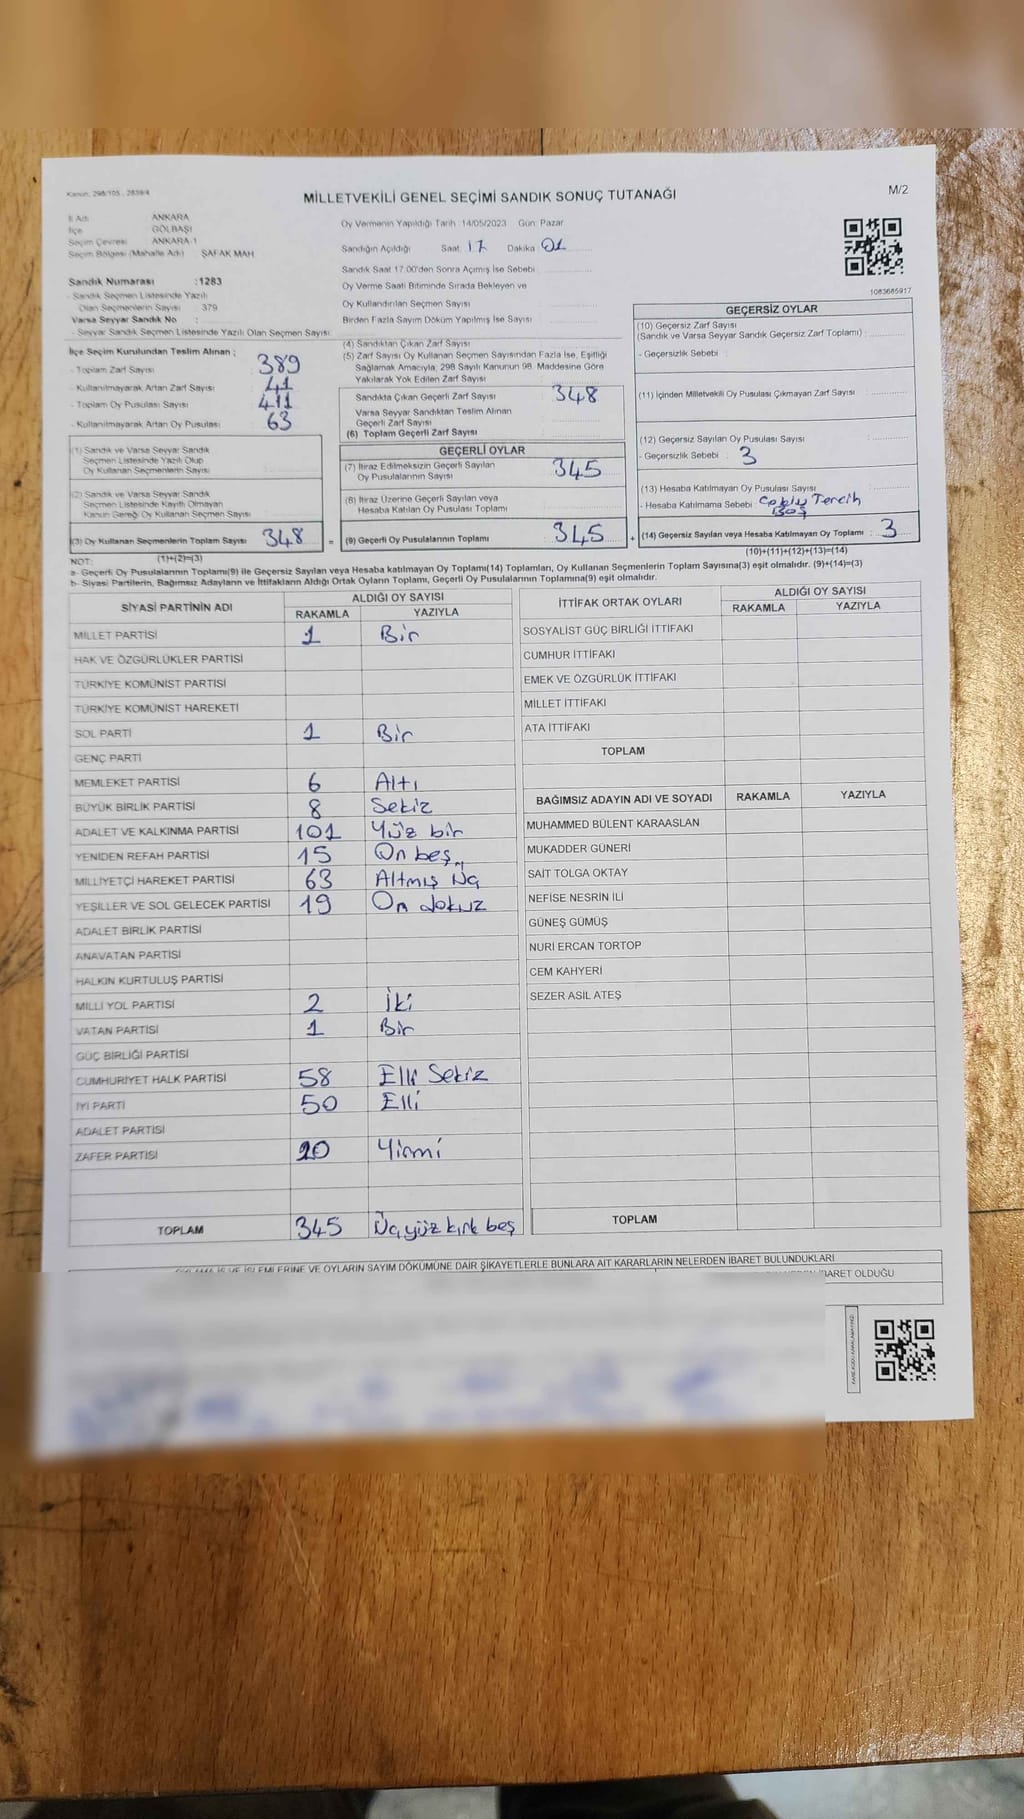 Kanun: 298/105 , 2839/4
M/2
MİLLETVEKİLİ GENEL SEÇİMİ SANDIK SONUÇ TUTANAĞI
İl Adı ANKARA
İlçe GÖLBAŞI
Seçim Çevresi ANKARA-1
Seçim Bölgesi (Mahalle Adı) ŞAFAK MAH
Sandık Numarası :1283
- Sandık Seçmen Listesinde Yazılı
Olan Seçmenlerin Sayısı 379
Varsa Seyyar Sandık No :
- Seyyar Sandık Seçmen Listesinde Yazılı Olan Seçmen Sayısı:
Oy Vermenin Yapıldığı Tarih :14/05/2023 Gün: Pazar
Sandığın Açıldığı Saat: 17 Dakika 01
Sandık Saat 17.00'den Sonra Açımış İse Sebebi
Oy Verme Saati Bitiminde Sırada Bekleyen ve
Oy Kullandırılan Seçmen Sayısı
Birden Fazla Sayım Döküm Yapılmış İse Sayısı
1083685917
İlçe Seçim Kurulundan Teslim Alınan ;
- Toplam Zarf Sayısı 389
- Kullanılmayarak Artan Zarf Sayısı 41
- Toplam Oy Pusulası Sayısı 411
- Kullanılmayarak Artan Oy Pusulası 63
(1) Sandık ve Varsa Seyyar Sandık
Seçmen Listesinde Yazılı Olup
Oy Kullanan Seçmenlerin Sayısı
(2) Sandık ve Varsa Seyyar Sandık
Seçmen Listesinde Kayıtlı Olmayan
Kanun Gereği Oy Kullanan Seçmen Sayısı
(3) Oy Kullanan Seçmenlerin Toplam Sayısı 348
(1)+(2)=(3)
(4) Sandıktan Çıkan Zarf Sayısı
(5) Zarf Sayısı Oy Kullanan Seçmen Sayısından Fazla İse, Eşitliği
Sağlamak Amacıyla, 298 Sayılı Kanunun 98. Maddesine Göre
Yakılarak Yok Edilen Zarf Sayısı
Sandıkta Çıkan Geçerli Zarf Sayısı 348
Varsa Seyyar Sandıktan Teslim Alınan
Geçerli Zarf Sayısı
(6) Toplam Geçerli Zarf Sayısı
GEÇERLİ OYLAR
(7) İtiraz Edilmeksizin Geçerli Sayılan
Oy Pusulalarının Sayısı 345
(8) İtiraz Üzerine Geçerli Sayılan veya
Hesaba Katılan Oy Pusulası Toplamı
= (9) Geçerli Oy Pusulalarının Toplamı 345
GEÇERSİZ OYLAR
(10) Geçersiz Zarf Sayısı
(Sandık ve Varsa Seyyar Sandık Geçersiz Zarf Toplamı) :
- Geçersizlik Sebebi :
(11) İçinden Milletvekili Oy Pusulası Çıkmayan Zarf Sayısı
(12) Geçersiz Sayılan Oy Pusulası Sayısı
- Geçersizlik Sebebi : 3
(13) Hesaba Katılmayan Oy Pusulası Sayısı
- Hesaba Katılmama Sebebi : Tercih
Boş
+ (14) Geçersiz Sayılan veya Hesaba Katılmayan Oy Toplamı : 3
(10)+(11)+(12)+(13)=(14)
NOT:
a- Geçerli Oy Pusulalarının Toplamı(9) ile Geçersiz Sayılan veya Hesaba katılmayan Oy Toplamı(14) Toplamları, Oy Kullanan Seçmenlerin Toplam Sayısına(3) eşit olmalıdır. (9)+(14)=(3)
b- Siyasi Partilerin, Bağımsız Adayların ve İttifakların Aldığı Ortak Oyların Toplamı, Geçerli Oy Pusulalarının Toplamına(9) eşit olmalıdır.
SİYASİ PARTİNİN ADI ALDIĞI OY SAYISI
RAKAMLA YAZIYLA
MİLLET PARTİSİ 1 Bir
HAK VE ÖZGÜRLÜKLER PARTİSİ
TÜRKİYE KOMÜNİST PARTİSİ
TÜRKİYE KOMÜNİST HAREKETİ
SOL PARTİ 1 Bir
GENÇ PARTİ
MEMLEKET PARTİSİ 6 Altı
BÜYÜK BİRLİK PARTİSİ 8 Sekiz
ADALET VE KALKINMA PARTİSİ 101 Yüz bir
YENİDEN REFAH PARTİSİ 15 On beş
MİLLİYETÇİ HAREKET PARTİSİ 63 Altmış Üç
YEŞİLLER VE SOL GELECEK PARTİSİ 19 On dokuz
ADALET BİRLİK PARTİSİ
ANAVATAN PARTİSİ
HALKIN KURTULUŞ PARTİSİ
MİLLİ YOL PARTİSİ 2 İki
VATAN PARTİSİ 1 Bir
GÜÇ BİRLİĞİ PARTİSİ
CUMHURİYET HALK PARTİSİ 58 Elli Sekiz
İYİ PARTİ 50 Elli
ADALET PARTİSİ
ZAFER PARTİSİ 20 Yirmi
TOPLAM 345 Üçyüz kırk beş
İTTİFAK ORTAK OYLARI ALDIĞI OY SAYISI
RAKAMLA YAZIYLA
SOSYALİST GÜÇ BİRLİĞİ İTTİFAKI
CUMHUR İTTİFAKI
EMEK VE ÖZGÜRLÜK İTTİFAKI
MİLLET İTTİFAKI
ATA İTTİFAKI
TOPLAM
BAĞIMSIZ ADAYIN ADI VE SOYADI RAKAMLA YAZIYLA
MUHAMMED BÜLENT KARAASLAN
MUKADDER GÜNERİ
SAİT TOLGA OKTAY
NEFİSE NESRİN İLİ
GÜNEŞ GÜMÜŞ
NURİ ERCAN TORTOP
CEM KAHYERİ
SEZER ASİL ATEŞ
TOPLAM
İŞLEMLERİNE VE OYLARIN SAYIM DÖKÜMÜNE DAİR ŞİKAYETLERLE BUNLARA AİT KARARLARIN NELERDEN İBARET BULUNDUKLARI
İBARET OLDUĞU